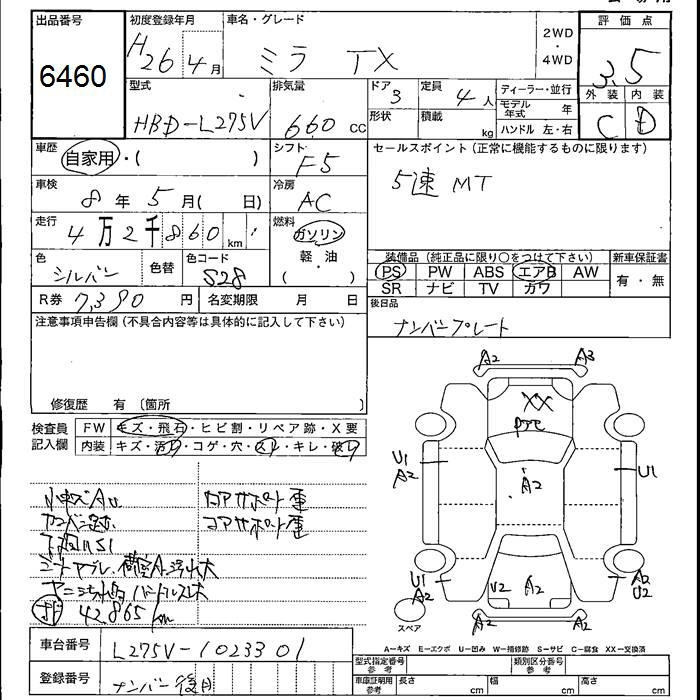 出品番号
6460
初度登録年月
H26 4月
車名・グレード
ミラ TX
2WD
・
4WD
評価点
3.5
外装 内装
C D
型式
HBD-L275V
排気量
660 cc
ドア
3
形状
定員
4人
積載
kg
ディーラー・並行
モデル年式 年
ハンドル 左・右
車歴
自家用・( )
シフト
F5
セールスポイント(正常に機能するものに限ります)
5速 MT
車検
8年 5月( 日)
冷房
AC
走行
4万2千860 km
燃料
ガソリン
軽・油
( )
色
シルバー
色替
色コード
S28
装備品(純正品に限り○をつけて下さい)
PS PW ABS エアB AW
SR ナビ TV カワ
新車保証書
有・無
R券 7,390円
名変期限 月 日
後日品
ナンバープレート
注意事項申告欄(不具合内容等は具体的に記入して下さい)
修復歴 有 〔箇所 〕
検査員記入欄
FW キズ・飛石・ヒビ割・リペア跡・X要
内装 キズ・汚れ・コゲ・穴・スレ・キレ・破れ
小キズAU
コアサポート
コアサポート
42,865km
A2 A3
XX
A2
U1
A2
U1
U1
A2
U2
A2
A2
U2
A2 A2
スペア
A-キズ E-エクボ U-凹み W-補修跡 S-サビ C-腐食 XX-交換済
車台番号
L275V-1023301
登録番号
ナンバー後日
型式指定番号
参考
類別区分番号
参考
車庫証明用
参考
長さ cm
幅 cm
高さ cm